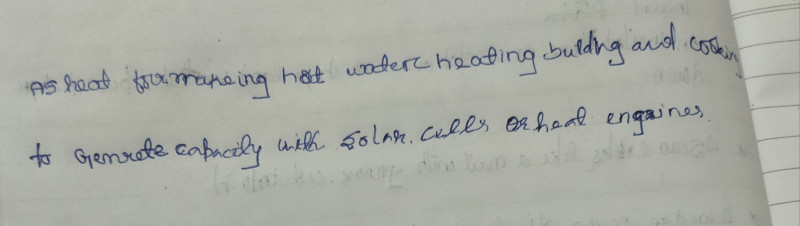 As heat for makeing hot water heating buldng and cooking
to Genrate capacity with solar. cells or heat engaines.